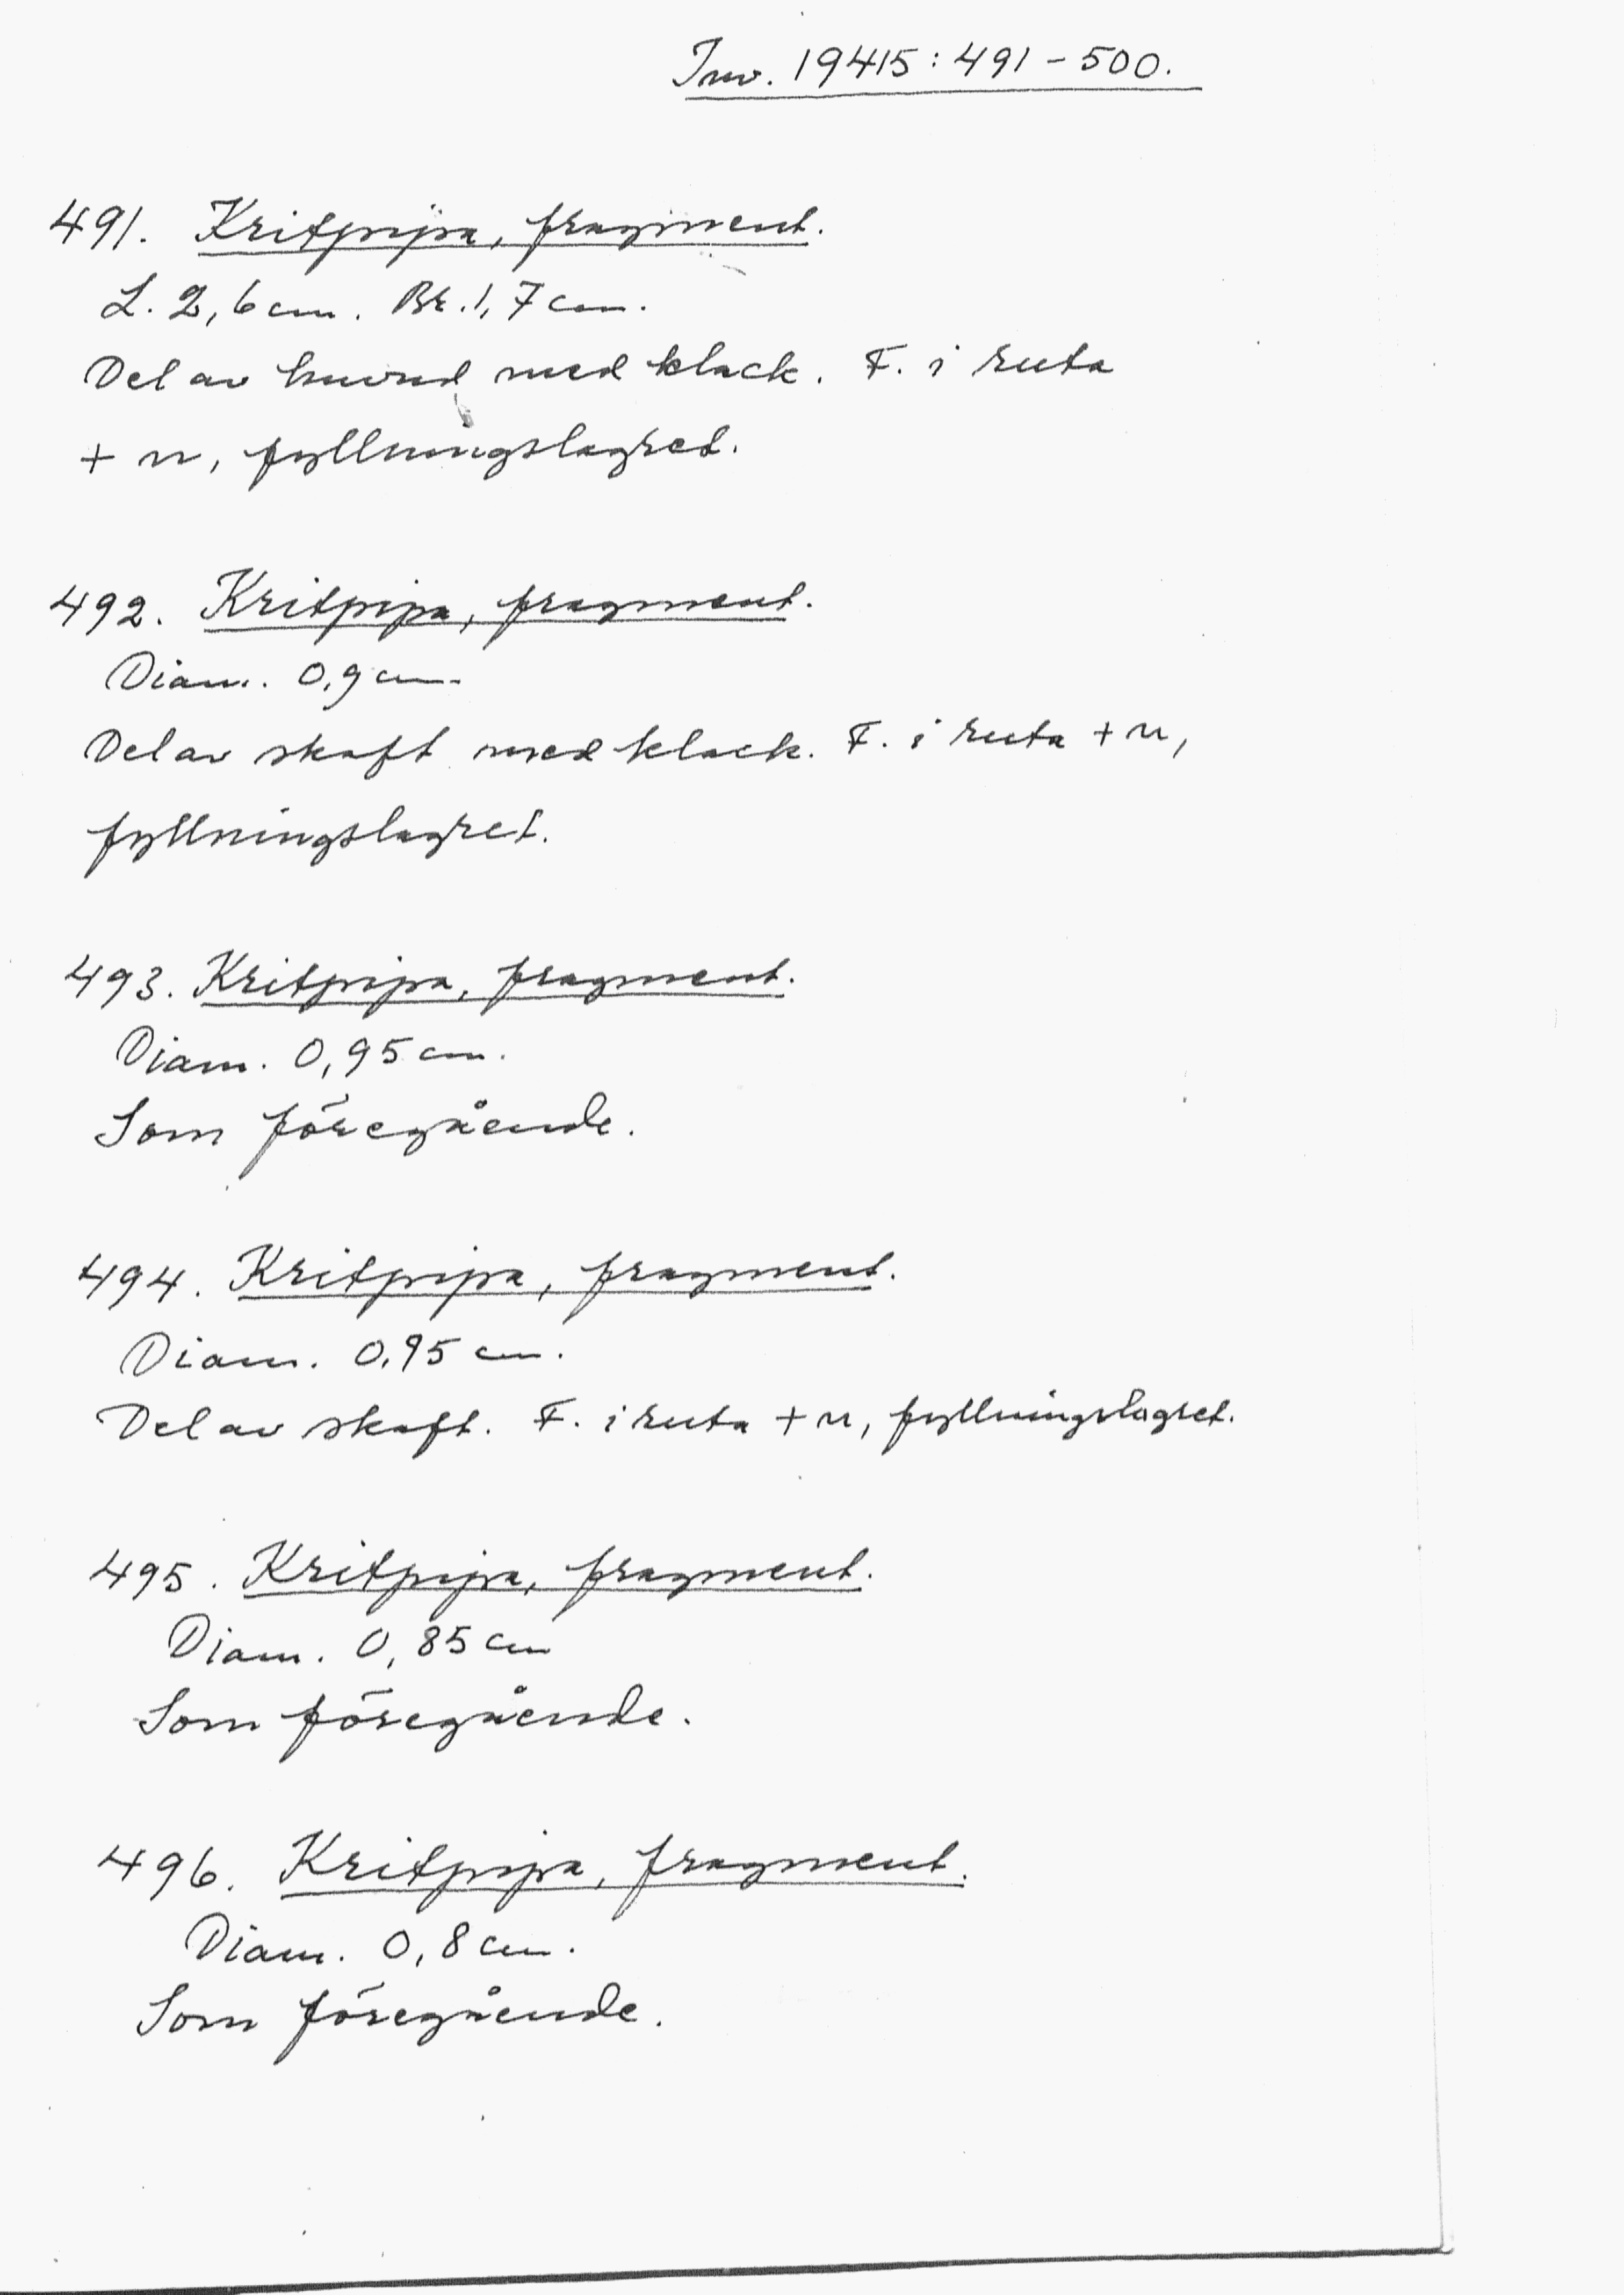 Inv. 19415:491-500.
491. Kritpipa, fragment.
L. 2,6 cm. Br. 1,7 cm.
Del av huvud med klack. F. i ruta
+ n, fyllningslagret.
492. Kritpipa, fragment.
Diam. 0,9 cm.
Del av skaft med klack. F. i ruta + n,
fyllningslagret.
493. Kritpipa, fragment.
Diam. 0,95 cm.
Som föregående.
494. Kritpipa, fragment.
Diam. 0,95 cm.
Del av skaft. F. i ruta + n, fyllningslagret.
495. Kritpipa, fragment.
Diam. 0,85 cm
Som föregående.
496. Kritpipa, fragment.
Diam. 0,8 cm.
Som föregående.